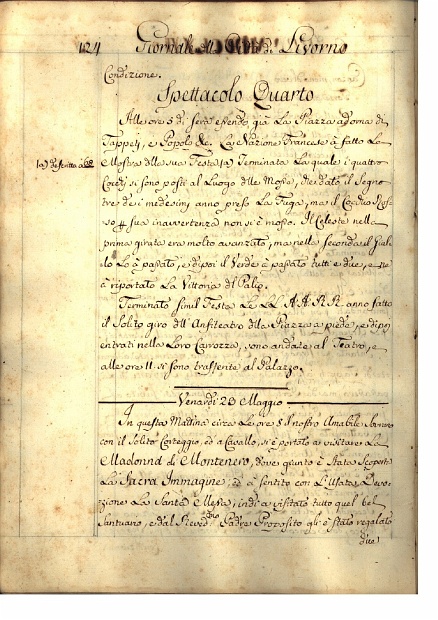 124 Giornale della Città di Livorno
Condizione.
Spettacolo Quarto
Alle ore 5 di sera essendo già La Piazza adorna di
Tappeti, e Popolo &c. La Nazione Francese à fatto La
Mostra della sua Festa (a) Terminata La quale i quattro
(a) descritta a 68
si sono posti al Luogo delle Mosse, die dato il Segno
tre de i medesimi anno preso La Fuga, ma il Ros-
so p sua inavvertenza non si è mosso. Il Celeste nella
prima girata era molto avanzato, ma nella seconda il Gial-
lo Lo à passato, e dipoi il Verde à passato tutti e due, e ne
à riportato La Vittoria del Palio.
Terminata simil Festa Le LL. AA. RR. anno fatto
il Solito giro dell' Anfiteatro della Piazza a piede, e dipoi
entrati nella Loro Carrozza, sono andate al Teatro, e
alle ore 11. si sono trasferite al Palazzo.
Venardi 23 Maggio
In questa Mattina circa Le ore 8 il nostro Amabile Sovrano
con il Solito Corteggio, ed a Cavallo, si è portato a visitare La
Madonna di Montenero, dove giunto è stata Scoperta
La Sacra Immagine, ed à sentito con L'Usata Devo-
zione La Santa Messa, indi à visitato tutto quel bel
Santuario, e dal Padre Proposito gli è stato regalato
due